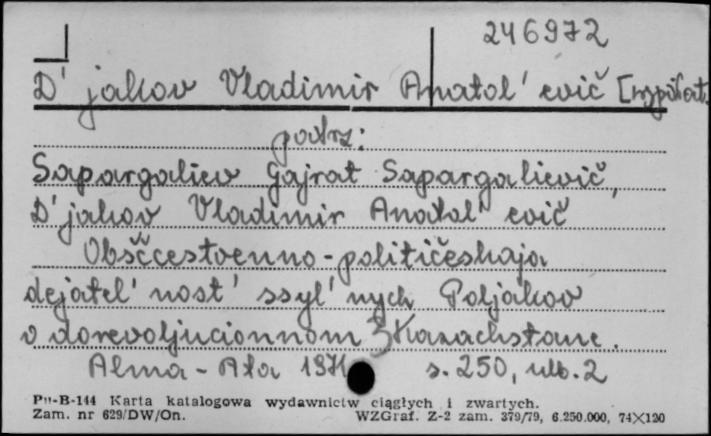 246972
D'jakov Vladimir Anatol'evič [współaut.
patrz:
Sapargaliev Gajrat Sapargalievič,
D'jakov Vladimir Anatol'evič
Obščcestvenno-političeskaja
dejatel'nost' ssyl'nych Poljakov
v dorevoljucionnom Kazachstane.
Alma-Ata 1971 s. 250, nlb. 2
Pu-B-144 Karta katalogowa wydawnictw ciągłych i zwartych.
Zam. nr 629/DW/On. WZGraf. Z-2 zam. 379/79, 6.250.000, 74X120